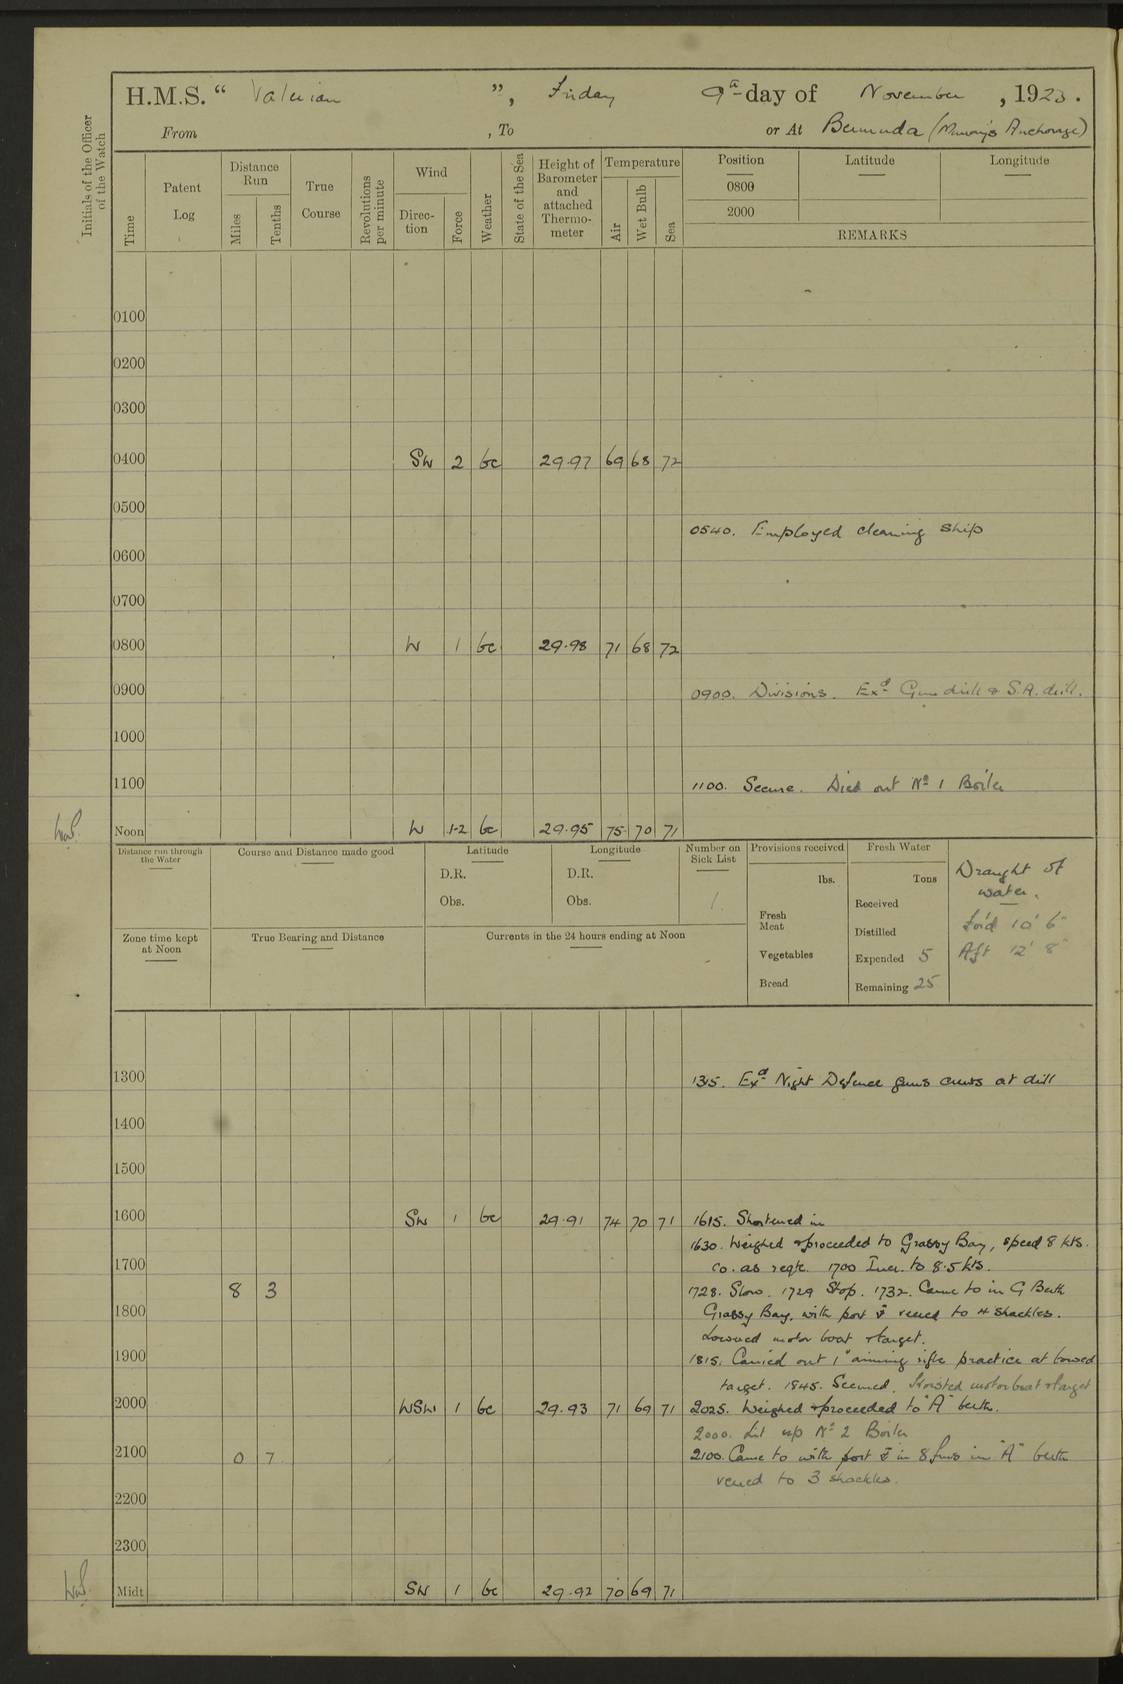 H.M.S. " Valerian ", Friday 9th day of November, 1923.
From , To or At Bermuda (Murray's Anchorage)
Initials of the Officer of the Watch
Time
Patent Log
Distance Run
Miles
Tenths
True Course
Revolutions per minute
Wind
Direction
Force
Weather
State of the Sea
Height of Barometer and attached Thermometer
Temperature
Air
Wet Bulb
Sea
Position Latitude Longitude
0800
2000
REMARKS
0100
0200
0300
0400 SW 2 bc 29.97 69 68 72
0500
0540. Employed cleaning ship
0600
0700
0800 W 1 bc 29.98 71 68 72
0900 0900. Divisions. Exd Gun drill & S.A. drill.
1000
1100 1100. Secure. Died out No 1 Boiler
Noon W 1-2 bc 29.95 75 70 71
Distance run through the Water
Course and Distance made good
Latitude
D.R.
Obs.
Longitude
D.R.
Obs.
Number on Sick List
1
Provisions received
lbs.
Fresh Meat
Vegetables
Bread
Fresh Water
Tons
Received
Distilled
Expended 5
Remaining 25
Draught of water.
For'd 10' 6"
Aft 12' 8"
Zone time kept at Noon
True Bearing and Distance
Currents in the 24 hours ending at Noon
1300 1315. Exd Night Defence guns crews at drill
1400
1500
1600 SW 1 bc 29.91 74 70 71 1615. Shortened in
1630. Weighed & proceeded to Grassy Bay, speed 8 kts.
1700 Co. as reqte. 1700 Incr. to 8.5 kts.
8 3 1728. Slow. 1729 Stop. 1732. Came to in G Berth
1800 Grassy Bay, with port ⚓ veered to 4 shackles.
Lowered motor boat & target.
1900 1815. Carried out 1" aiming rifle practice at towed
target. 1845. Secured. Hoisted motor boat & target
2000 WSW 1 bc 29.93 71 69 71 2025. Weighed & proceeded to "A" berth.
2000. Lit up No 2 Boiler
2100 0 7 2100. Came to with port ⚓ in 8 fms in "A" berth
veered to 3 shackles.
2200
2300
Midt SW 1 bc 29.92 70 69 71